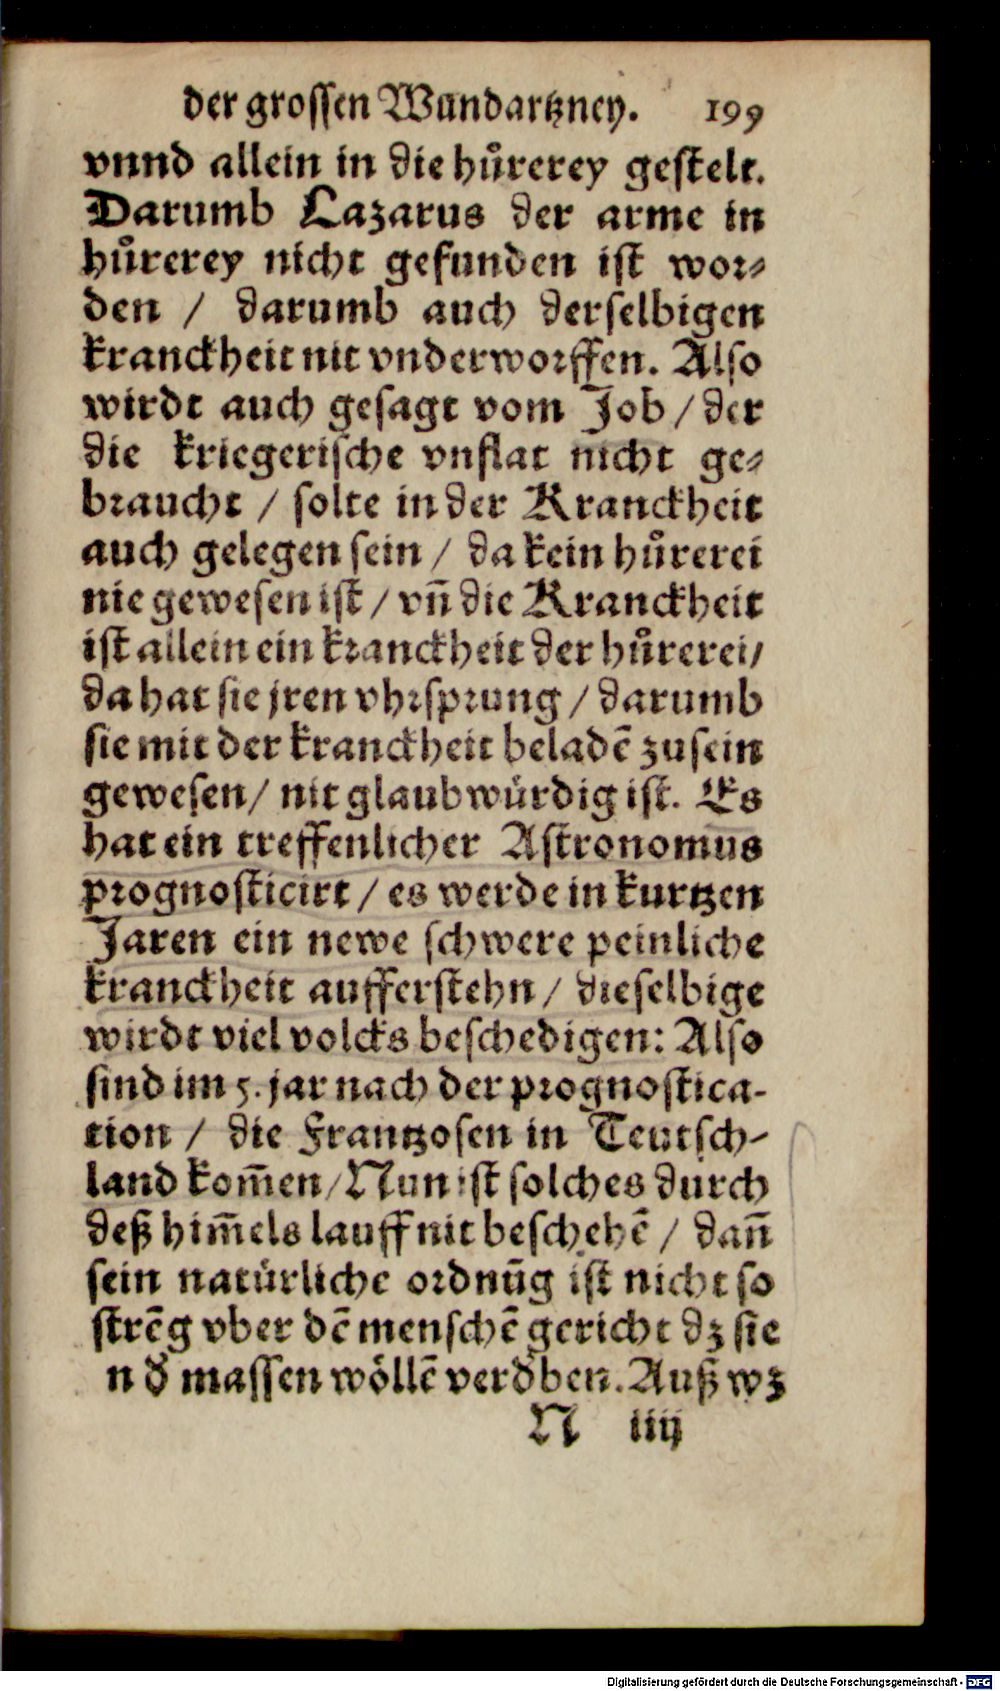 der grossen Wundartzney. 199
vnnd allein in die hůrerey gestelt.
Darumb Lazarus der arme in
hůrerey nicht gefunden ist wor-
den / darumb auch derselbigen
kranckheit nit vnderworffen. Also
wirdt auch gesagt vom Job / der
die kriegerische vnflat nicht ge-
braucht / solte in der Kranckheit
auch gelegen sein / da kein hůrerei
nie gewesen ist / vñ die Kranckheit
ist allein ein kranckheit der hůrerei/
da hat sie jren vhrsprung / darumb
sie mit der kranckheit beladē zu sein
gewesen / nit glaubwürdig ist. Es
hat ein treffenlicher Astronomus
prognosticirt / es werde in kurtzen
Jaren ein newe schwere peinliche
kranckheit aufferstehn / dieselbige
wirdt viel volcks beschedigen: Also
sind im 5. jar nach der prognostica-
tion / die Frantzosen in Teutsch-
land kom̄en / Nun ist solches durch
deß him̄els lauff nit beschehē / dañ
sein natürliche ordnūg ist nicht so
strēg vber dē menschē gericht dz sie
n d̕ massen wöllē verd̕ben. Auß wz
N iiij
Digitalisierung gefördert durch die Deutsche Forschungsgemeinschaft - DFG